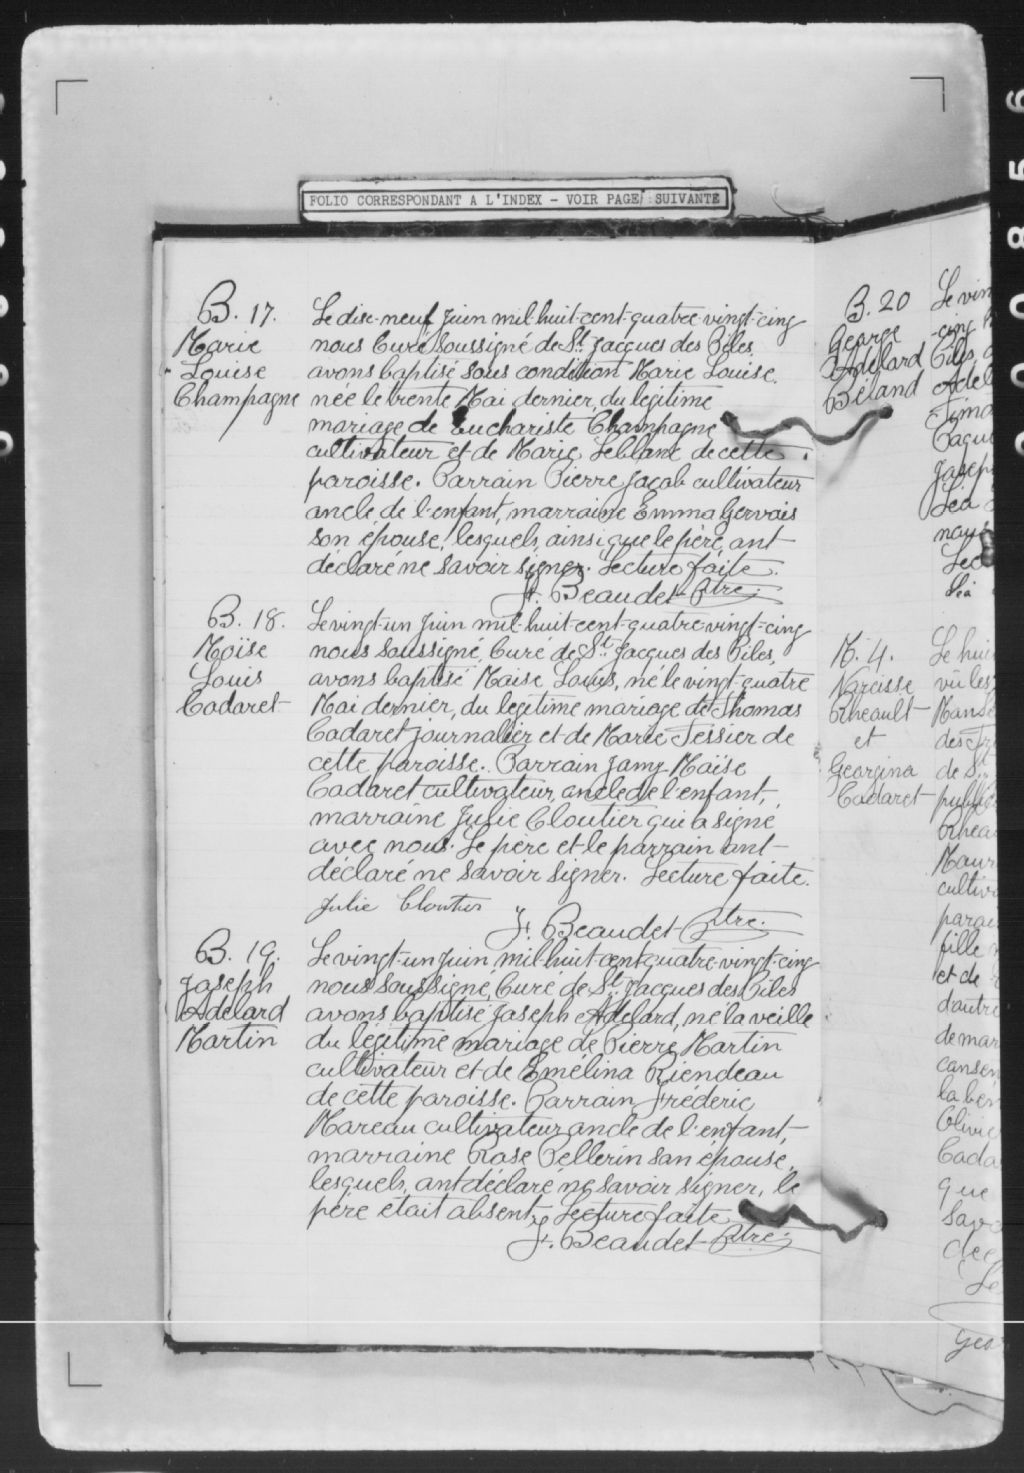 FOLIO CORRESPONDANT A L'INDEX - VOIR PAGE SUIVANTE
B. 17.
Marie
Louise
Champagne
Le dix-neuf juin mil-huit-cent-quatre-vingt-cinq
nous Curé soussigné de St. Jacques des Piles
avons baptisé sous condition Marie Louise,
née le trente Mai dernier, du légitime
mariage de Euchariste Champagne
cultivateur et de Marie Leblanc de cette
paroisse. Parrain Pierre Jacob cultivateur
oncle de l'enfant, marraine Emma Gervais
son épouse, lesquels, ainsi que le père, ont
déclaré ne savoir signer. Lecture faite.
F. Beaudet Ptre.
B. 18.
Moïse
Louis
Cadaret
Le vingt-un juin mil-huit-cent-quatre-vingt-cinq
nous soussigné, Curé de St. Jacques des Piles,
avons baptisé Moise Louis, né le vingt-quatre
Mai dernier, du légitime mariage de Thomas
Cadaret journalier et de Marie Tessier de
cette paroisse. Parrain Jamy Moïse
Cadaret cultivateur, oncle de l'enfant,
marraine Julie Cloutier qui a signé
avec nous. Le père et le parrain ont
déclaré ne savoir signer. Lecture faite.
Julie Cloutier
F. Beaudet Ptre.
B. 19.
Joseph
Adelard
Martin
Le vingt-un juin mil-huit-cent-quatre-vingt-cinq
nous soussigné, Curé de St. Jacques des Piles
avons baptisé Joseph Adelard, né la veille
du légitime mariage de Pierre Martin
cultivateur et de Emélina Riendeau
de cette paroisse. Parrain Fréderic
Mareau cultivateur oncle de l'enfant,
marraine Rose Pellerin son épouse,
lesquels, ont déclaré ne savoir signer, le
père était absent, Lecture faite
F. Beaudet Ptre.
B. 20
George
Adelard
Béland
Le vin
-cinq
Piles,
Adel
Joseph
Léa
nous
Lec
Léa
M. 4.
Narcisse
Rheault
et
Georgina
Cadaret
Le huit
vu les
des
de St.
Rhea
Maur
cultiv
paroi
fille
et de
d'autre
de mar
consen
la bén
Olivie
Cada
que
Savo
dec
Le
Geo